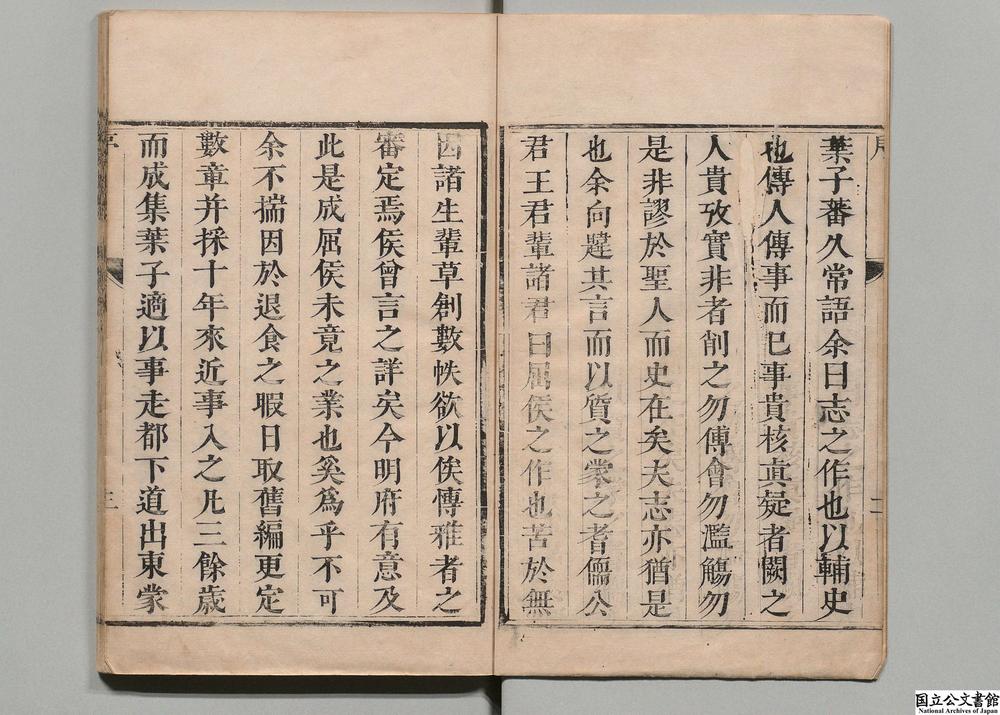 葉子蕃久常語余曰志之作也以輔史
也傳人傳事而已事貴核真疑者闕之
人貴攷實非者削之勿傅會勿濫觴勿
是非謬於聖人而史在矣夫志亦猶是
也余向韙其言而以質之蒙之耆儒公
君王君輩諸君曰屈侯之作也苦於無
二
因諸生輩草創數帙欲以俟博雅者之
審定焉侯曾言之詳矣今明府有意及
此是成屈侯未竟之業也奚為乎不可
余不揣因於退食之暇日取舊編更定
數章并採十年來近事入之凡三餘歲
而成集葉子適以事走都下道出東蒙
三
国立公文書館
National Archives of Japan